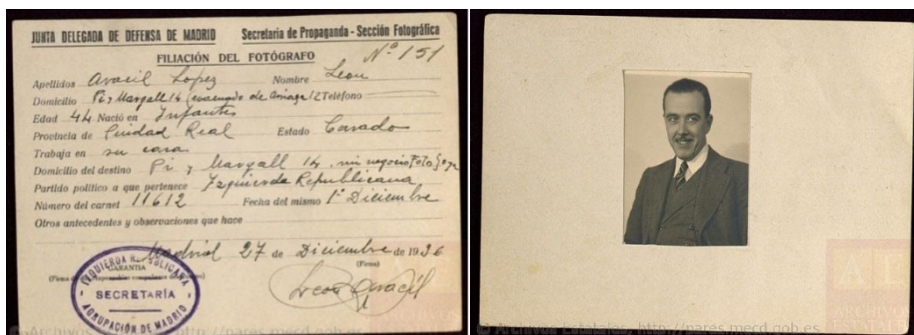 JUNTA DELEGADA DE DEFENSA DE MADRID Secretaria de Propaganda - Sección Fotográfica
Nº 151
FILIACIÓN DEL FOTÓGRAFO
Apellidos Aracil Lopez Nombre Leon
Domicilio Pi y Margall 14 (evacuado de 12 Teléfono
Edad 44 Nació en Infantes
Provincia de Ciudad Real Estado Casado
Trabaja en su casa
Domicilio del destino Pi y Margall 14. mi negocio Foto Goya
Partido político a que pertenece Izquierda Republicana
Número del carnet 11612 Fecha del mismo 1º Diciembre
Otros antecedentes y observaciones que hace
Madrid 27 de Diciembre de 1936
GARANTIA (Firma)
(Firma
Leon Aracil
IZQUIERDA REPUBLICANA
SECRETARÍA
AGRUPACIÓN DE MADRID
© Archivos Estatales, http://pares.mecd.gob.es
ARCHIVOS
ESTATALES
© Archivos Estatales, http://pares.mecd.gob.es